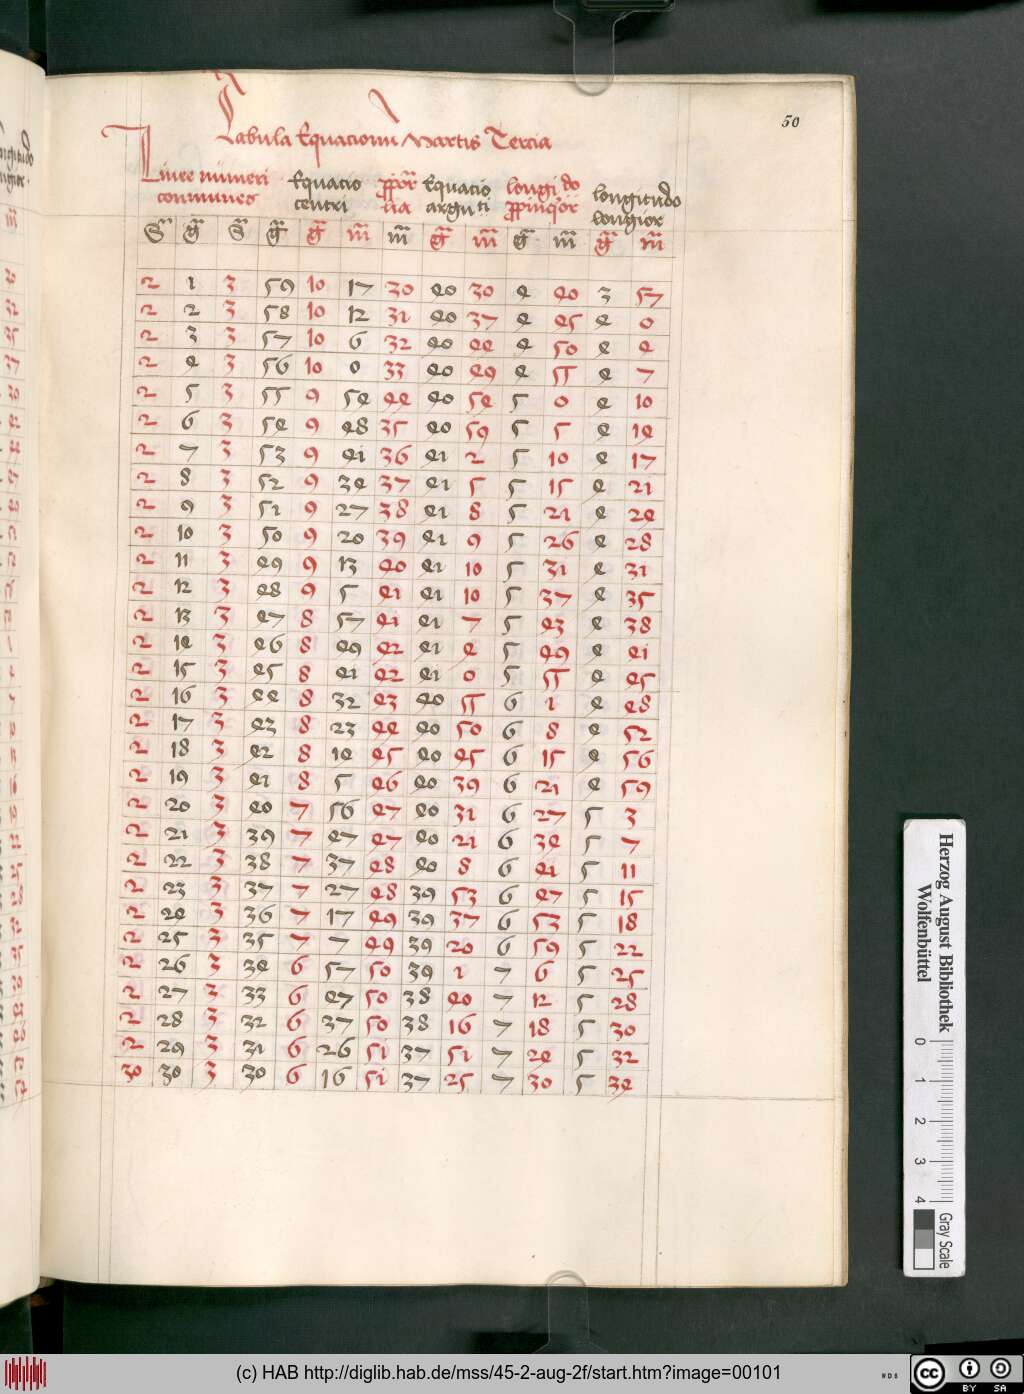 50
Tabula Equacionu Martis Tercia
Linee numeri Equacio Equacio longitudo longitudo
communes centri argumti longior
S g S g g m m g m g m g m
2 1 3 59 10 17 30 40 30 4 40 3 57
2 2 3 58 10 12 31 40 37 4 45 4 0
2 3 3 57 10 6 32 40 44 4 50 4 4
2 4 3 56 10 0 33 40 49 4 55 4 7
2 5 3 55 9 54 44 40 54 5 0 4 10
2 6 3 54 9 48 35 40 59 5 5 4 14
2 7 3 53 9 41 36 41 2 5 10 4 17
2 8 3 52 9 34 37 41 5 5 15 4 21
2 9 3 51 9 27 38 41 8 5 21 4 24
2 10 3 50 9 20 39 41 9 5 26 4 28
2 11 3 49 9 13 40 41 10 5 31 4 31
2 12 3 48 9 5 41 41 10 5 37 4 35
2 13 3 47 8 57 41 41 7 5 43 4 38
2 14 3 46 8 49 42 41 4 5 49 4 41
2 15 3 45 8 41 42 41 0 5 55 4 45
2 16 3 44 8 32 43 40 55 6 1 4 48
2 17 3 43 8 23 44 40 50 6 8 4 52
2 18 3 42 8 14 45 40 45 6 15 4 56
2 19 3 41 8 5 46 40 39 6 21 4 59
2 20 3 40 7 56 47 40 31 6 27 5 3
2 21 3 39 7 47 47 40 21 6 34 5 7
2 22 3 38 7 37 48 40 8 6 41 5 11
2 23 3 37 7 27 48 39 53 6 47 5 15
2 24 3 36 7 17 49 39 37 6 53 5 18
2 25 3 35 7 7 49 39 20 6 59 5 22
2 26 3 34 6 57 50 39 1 7 6 5 25
2 27 3 33 6 47 50 38 40 7 12 5 28
2 28 3 32 6 37 50 38 16 7 18 5 30
2 29 3 31 6 26 51 37 51 7 24 5 32
30 30 3 30 6 16 51 37 25 7 30 5 34
Herzog August Bibliothek
Wolfenbüttel
0 1 2 3 4
Gray Scale
(c) HAB http://diglib.hab.de/mss/45-2-aug-2f/start.htm?image=00101
cc BY SA